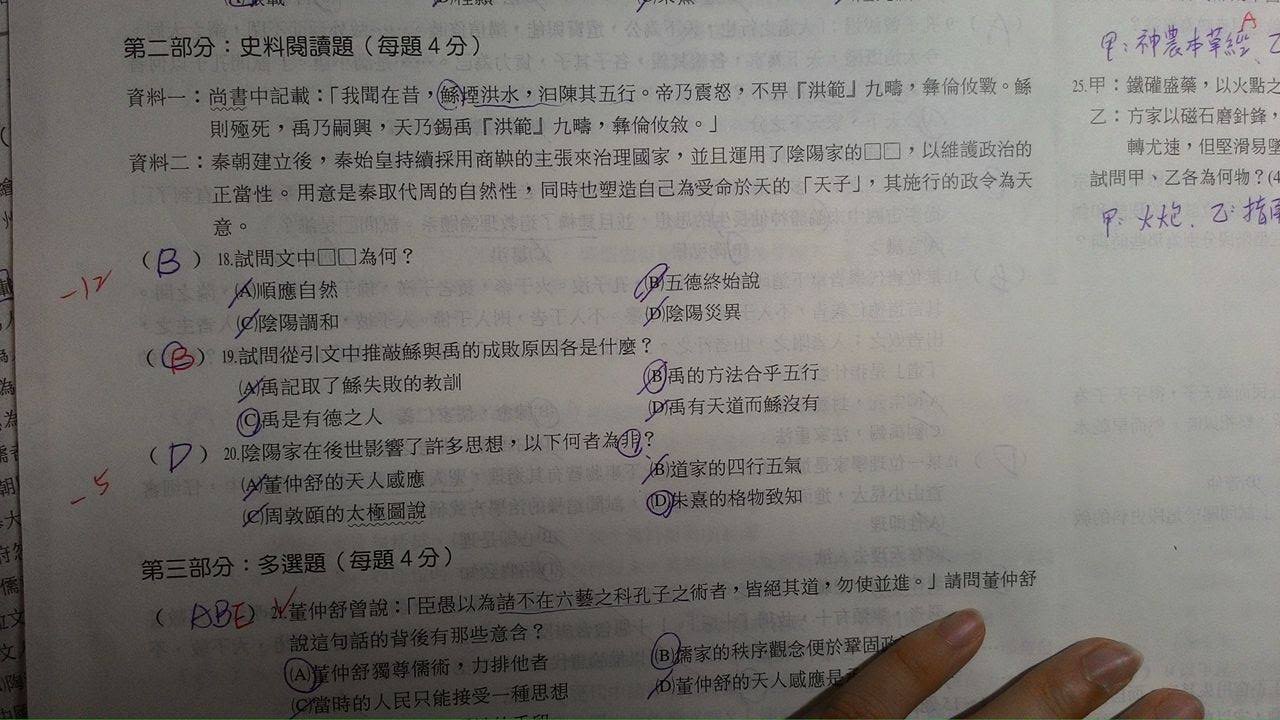 第二部分：史料閱讀題（每題4分）
資料一：尚書中記載：「我聞在昔，鯀堙洪水，汩陳其五行。帝乃震怒，不畀『洪範』九疇，彝倫攸斁。鯀
則殛死，禹乃嗣興，天乃錫禹『洪範』九疇，彝倫攸敘。」
資料二：秦朝建立後，秦始皇持續採用商鞅的主張來治理國家，並且運用了陰陽家的□□，以維護政治的
正當性。用意是秦取代周的自然性，同時也塑造自己為受命於天的「天子」，其施行的政令為天
意。
（ B ）18.試問文中□□為何？
-12
(A)順應自然 (B)五德終始說
(C)陰陽調和 (D)陰陽災異
（ B ）19.試問從引文中推敲鯀與禹的成敗原因各是什麼？
(A)禹記取了鯀失敗的教訓 (B)禹的方法合乎五行
(C)禹是有德之人 (D)禹有天道而鯀沒有
（ D ）20.陰陽家在後世影響了許多思想，以下何者為非？
-5
(A)董仲舒的天人感應 (B)道家的四行五氣
(C)周敦頤的太極圖說 (D)朱熹的格物致知
第三部分：多選題（每題4分）
（ ABE ）21.董仲舒曾說：「臣愚以為諸不在六藝之科孔子之術者，皆絕其道，勿使並進。」請問董仲舒
說這句話的背後有那些意含？
(A)董仲舒獨尊儒術，力排他者 (B)儒家的秩序觀念便於鞏固政
(C)當時的人民只能接受一種思想 (D)董仲舒的天人感應是
A
甲：神農本草經、乙
25.甲：鐵確盛藥，以火點之
乙：方家以磁石磨針鋒，
轉尤速，但堅滑易墜
試問甲、乙各為何物？(4
甲：火炮、乙：指南